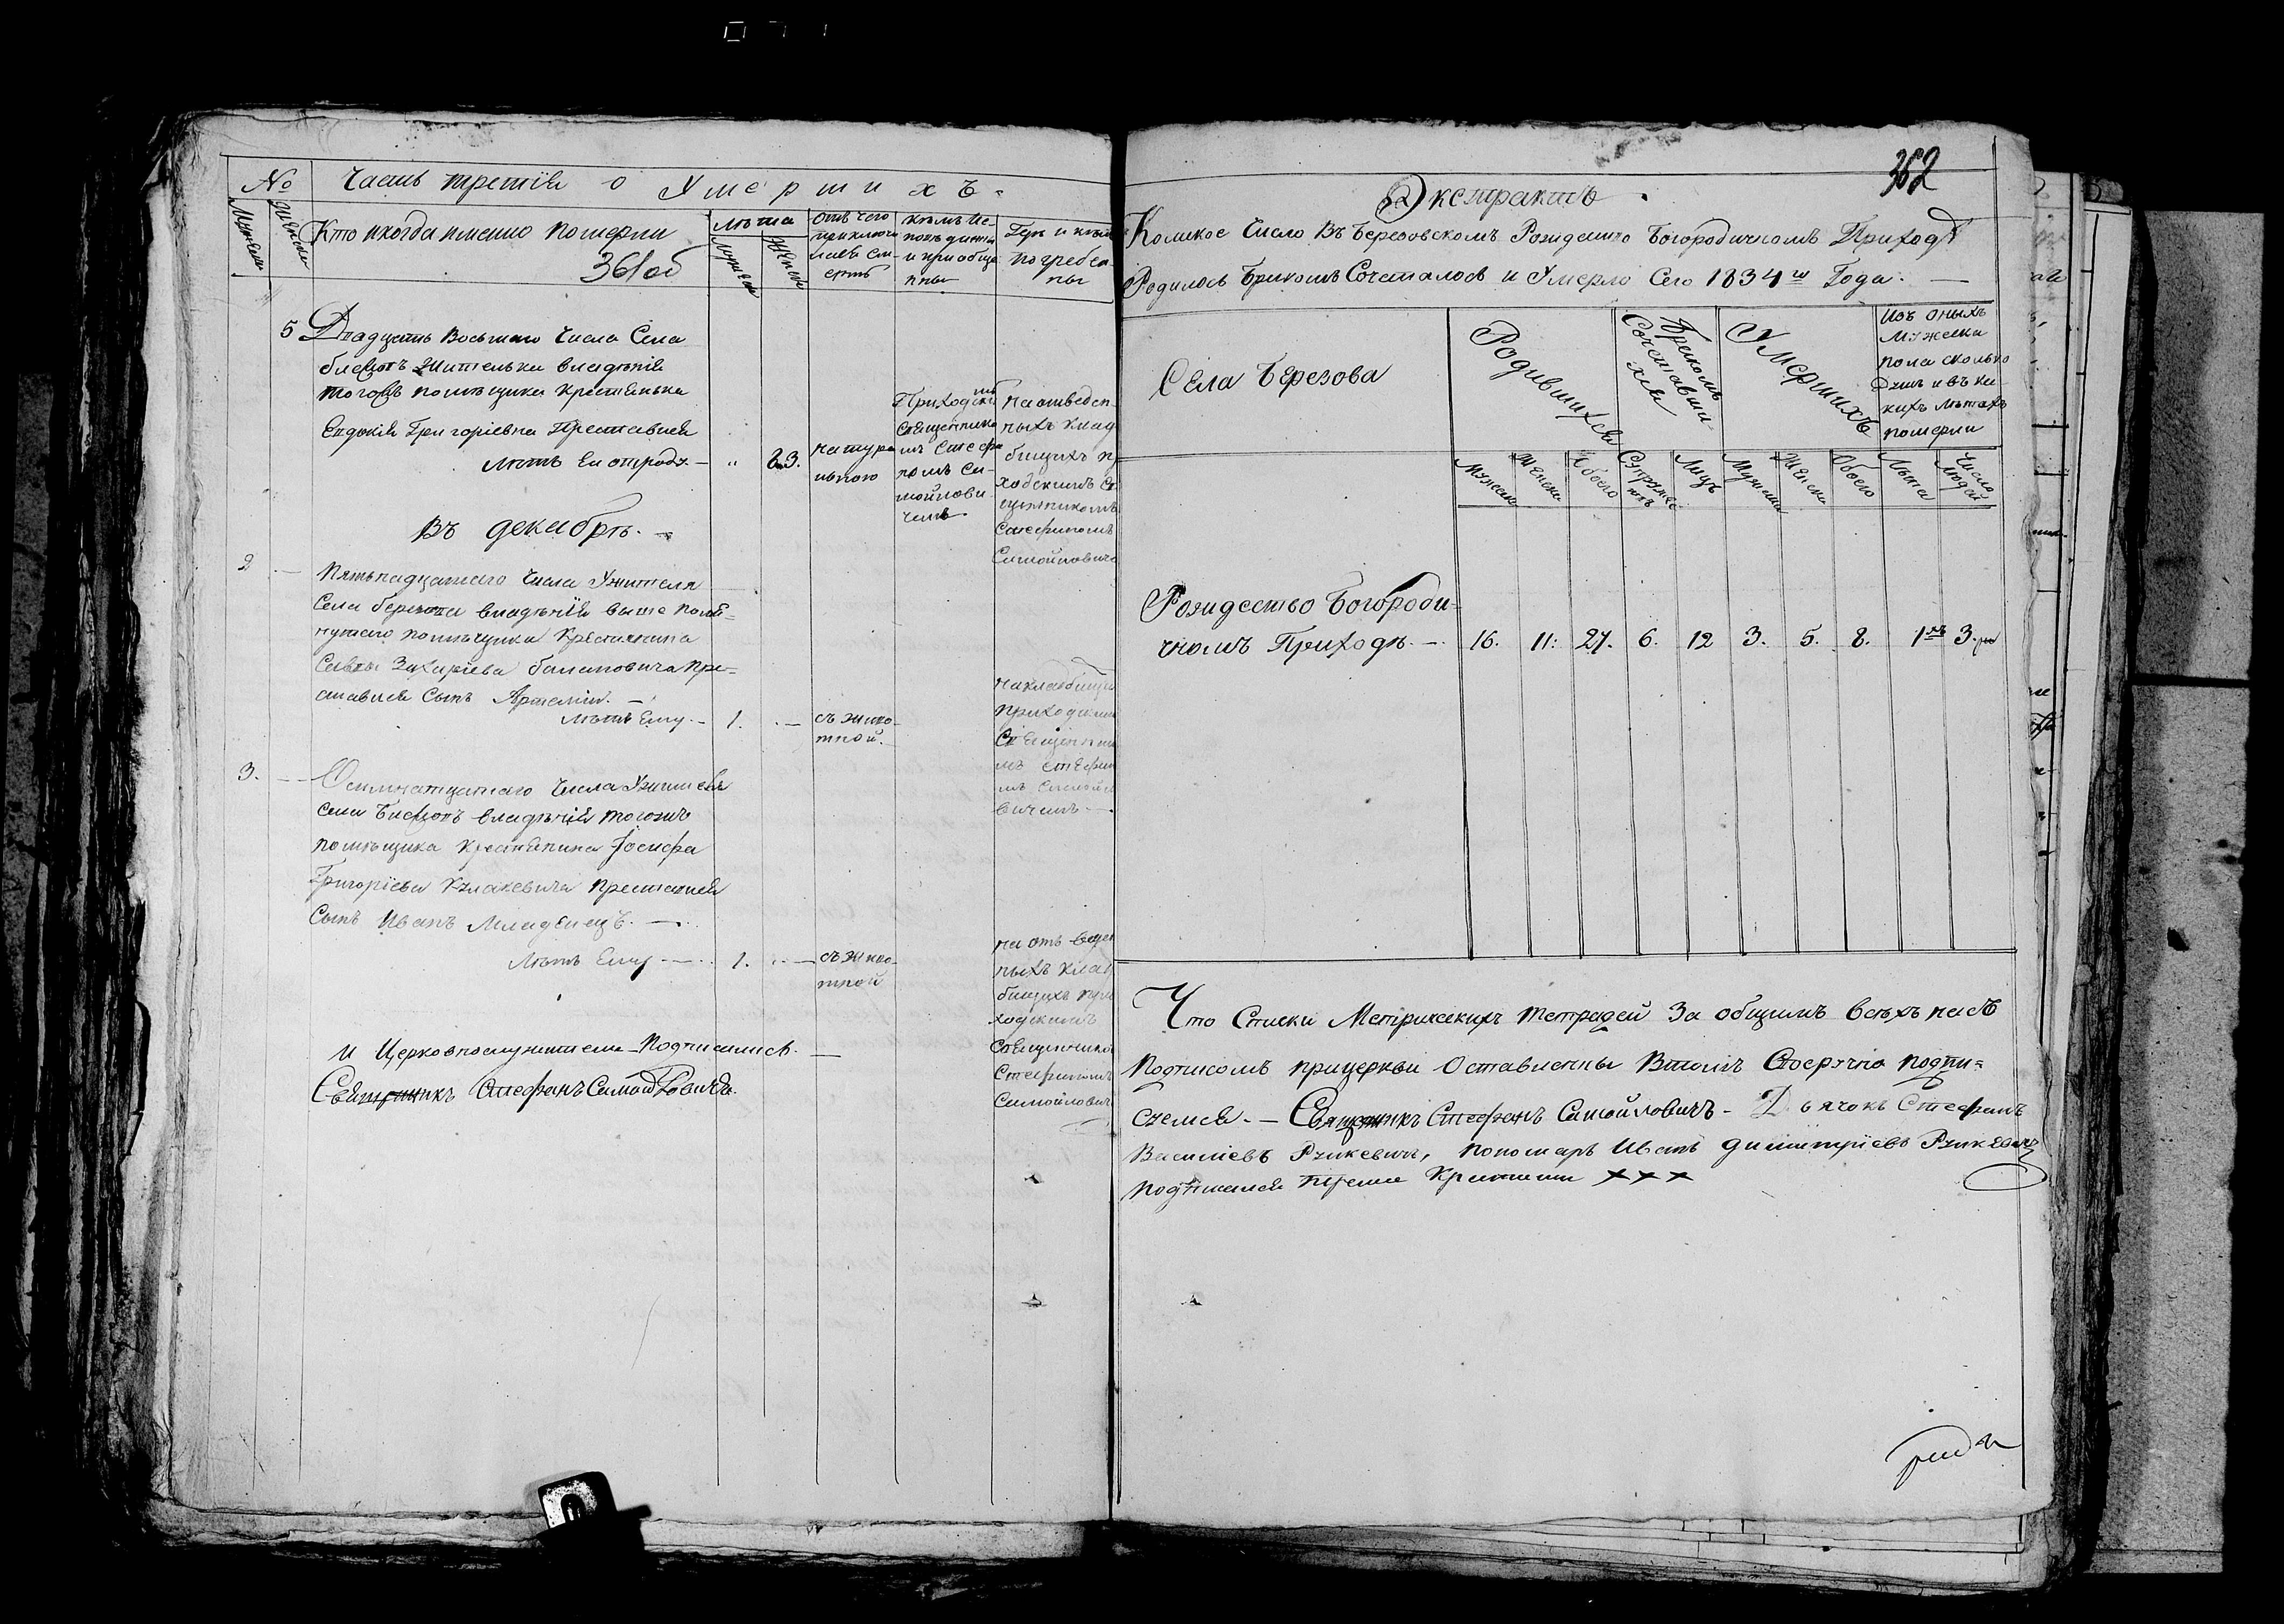 № Часть третія о Умершихъ.
Мужеска
Женска
Кто и когда именно померли
361об
Лѣта
Мужеска
Женска
Отъ чего
приключи
лась см-
ерть
Кѣмъ Ис-
повѣдинны
и приобще
нны
Гдѣ и кѣмъ
погребен-
ны
5 Двадцять Восьмаго Числа Села
жителька владѣнія
помѣщика крестянька
Евдокія Григоріевна Преставися
лѣтъ Еи отроду — " 23.
натура
льною
Приходскимъ
Священнико
мъ Стефа
номъ Са-
мойлови-
чемъ
на отведен-
ныхъ клад
бищихъ п
ходскимъ Св
щенникомъ
Стефаномъ
Самойловиче
Въ декабрѣ. —
2 — Пятьнадцатаго Числа Ужителя
Села березова владѣнія выше помѣ-
нутаго помѣщика Крестянина
Савы Захаріева Пре-
ставися Сынъ Артемій. —
Лѣтъ Ему. — 1. . — съ живо-
тной.
на кладбищи
приходским
Священни
мъ Стефан
мъ Самойл
вичемъ —
3. — Осимнатцатаго Числа Ужителя
села владѣнія тогожъ
помѣщика Крестянина Іосифа
Григоріева Кулакевича Преставися
Сынъ Иванъ Младенецъ. —
Лѣтъ Ему — 1. . — съ живо-
тной
на отъ веден
ныхъ клад
бищихъ при
ходскимъ
Священнико
Стефаномъ
Самойлович
и Церковнослужители Подписалися. —
Священникъ Стефанъ Самойловичъ.
362
Экстрактъ.
Коликое Число Въ Березовскомъ Рождество Богородичномъ Приходѣ
Родилось Бракомъ Сочеталось и Умерло Сего 1834го Года. —
Села Березова
Родившихся
Бракомъ
Сочетавши-
хся
Умершихъ
Изъ оныхъ
Мужеска
пола сколько
Душъ и въ ка-
кихъ лѣтахъ
померли
Мужеска
Женска
Обоего
Супруже
ствъ
Лицъ
Мужеска
Женска
Обоего
Лѣта
Число
людей
Рождество Богороди-
чномъ Приходѣ. — 16. 11. 27. 6. 12 3. 5. 8. 1 3.
Что Списки Метрическихъ тетрадей За общимъ всѣхъ насъ
Подписомъ прицерквы Оставленны Втомъ Своеручно подпи-
суемся. — Священникъ Стефанъ Самойловичъ — Дьячокъ Стефанъ
Василіевъ Рункевичъ, пономарь Иванъ Димитріевъ Рункевичъ
подписался треми Крестами ХХХ